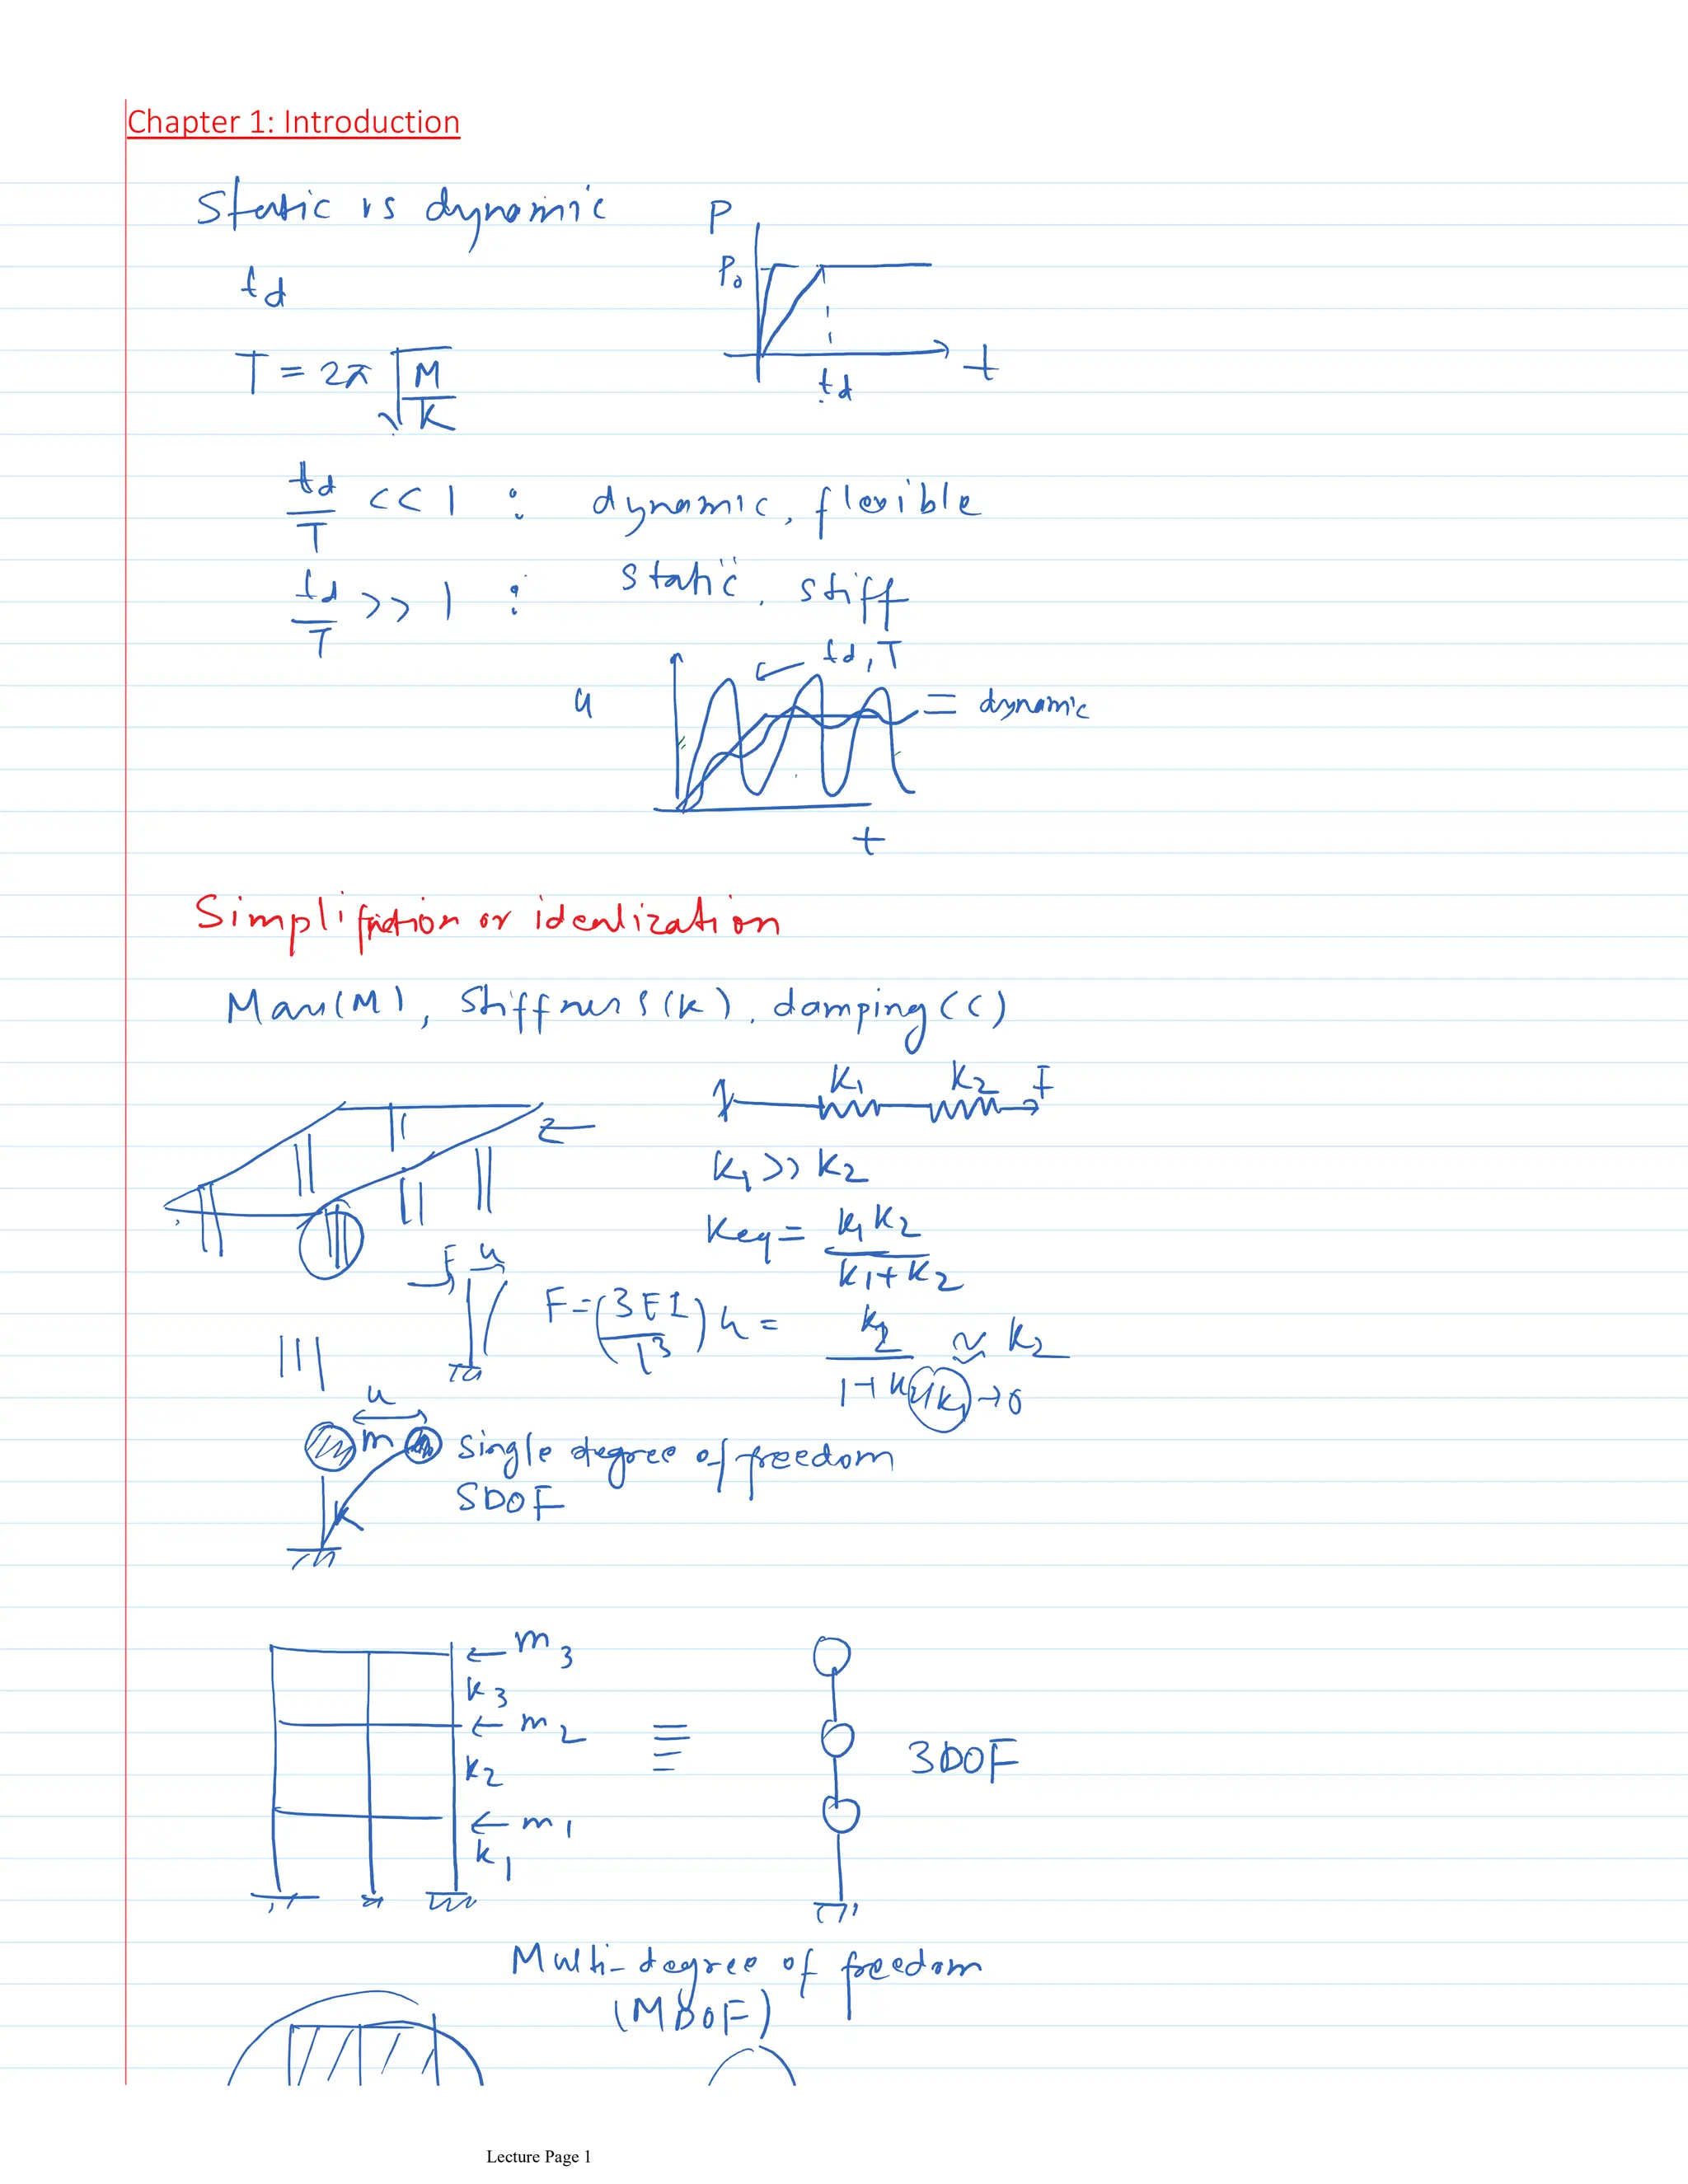 Chapter 1: Introduction
Static vs dynamic
P
P₀
t_d
t
t_d
T = 2π √(M/K)
t_d/T << 1 : dynamic, flexible
t_d/T >> 1 : static, stiff
t_d, T
u
= dynamic
t
Simplification or idealization
Mass(M), Stiffness(k), damping(c)
K₁ K₂ F
K₁ >> K₂
Keq = K₁K₂/(K₁+K₂)
F u
F = (3EI/l³) u
= k₂/(1+k₂/k₁) ≈ k₂
→ 0
u
m
K
Single degree of freedom
SDOF
← m₃
k₃
← m₂
k₂
← m₁
k₁
≡
3DOF
Multi-degree of freedom
(MDOF)
Lecture Page 1